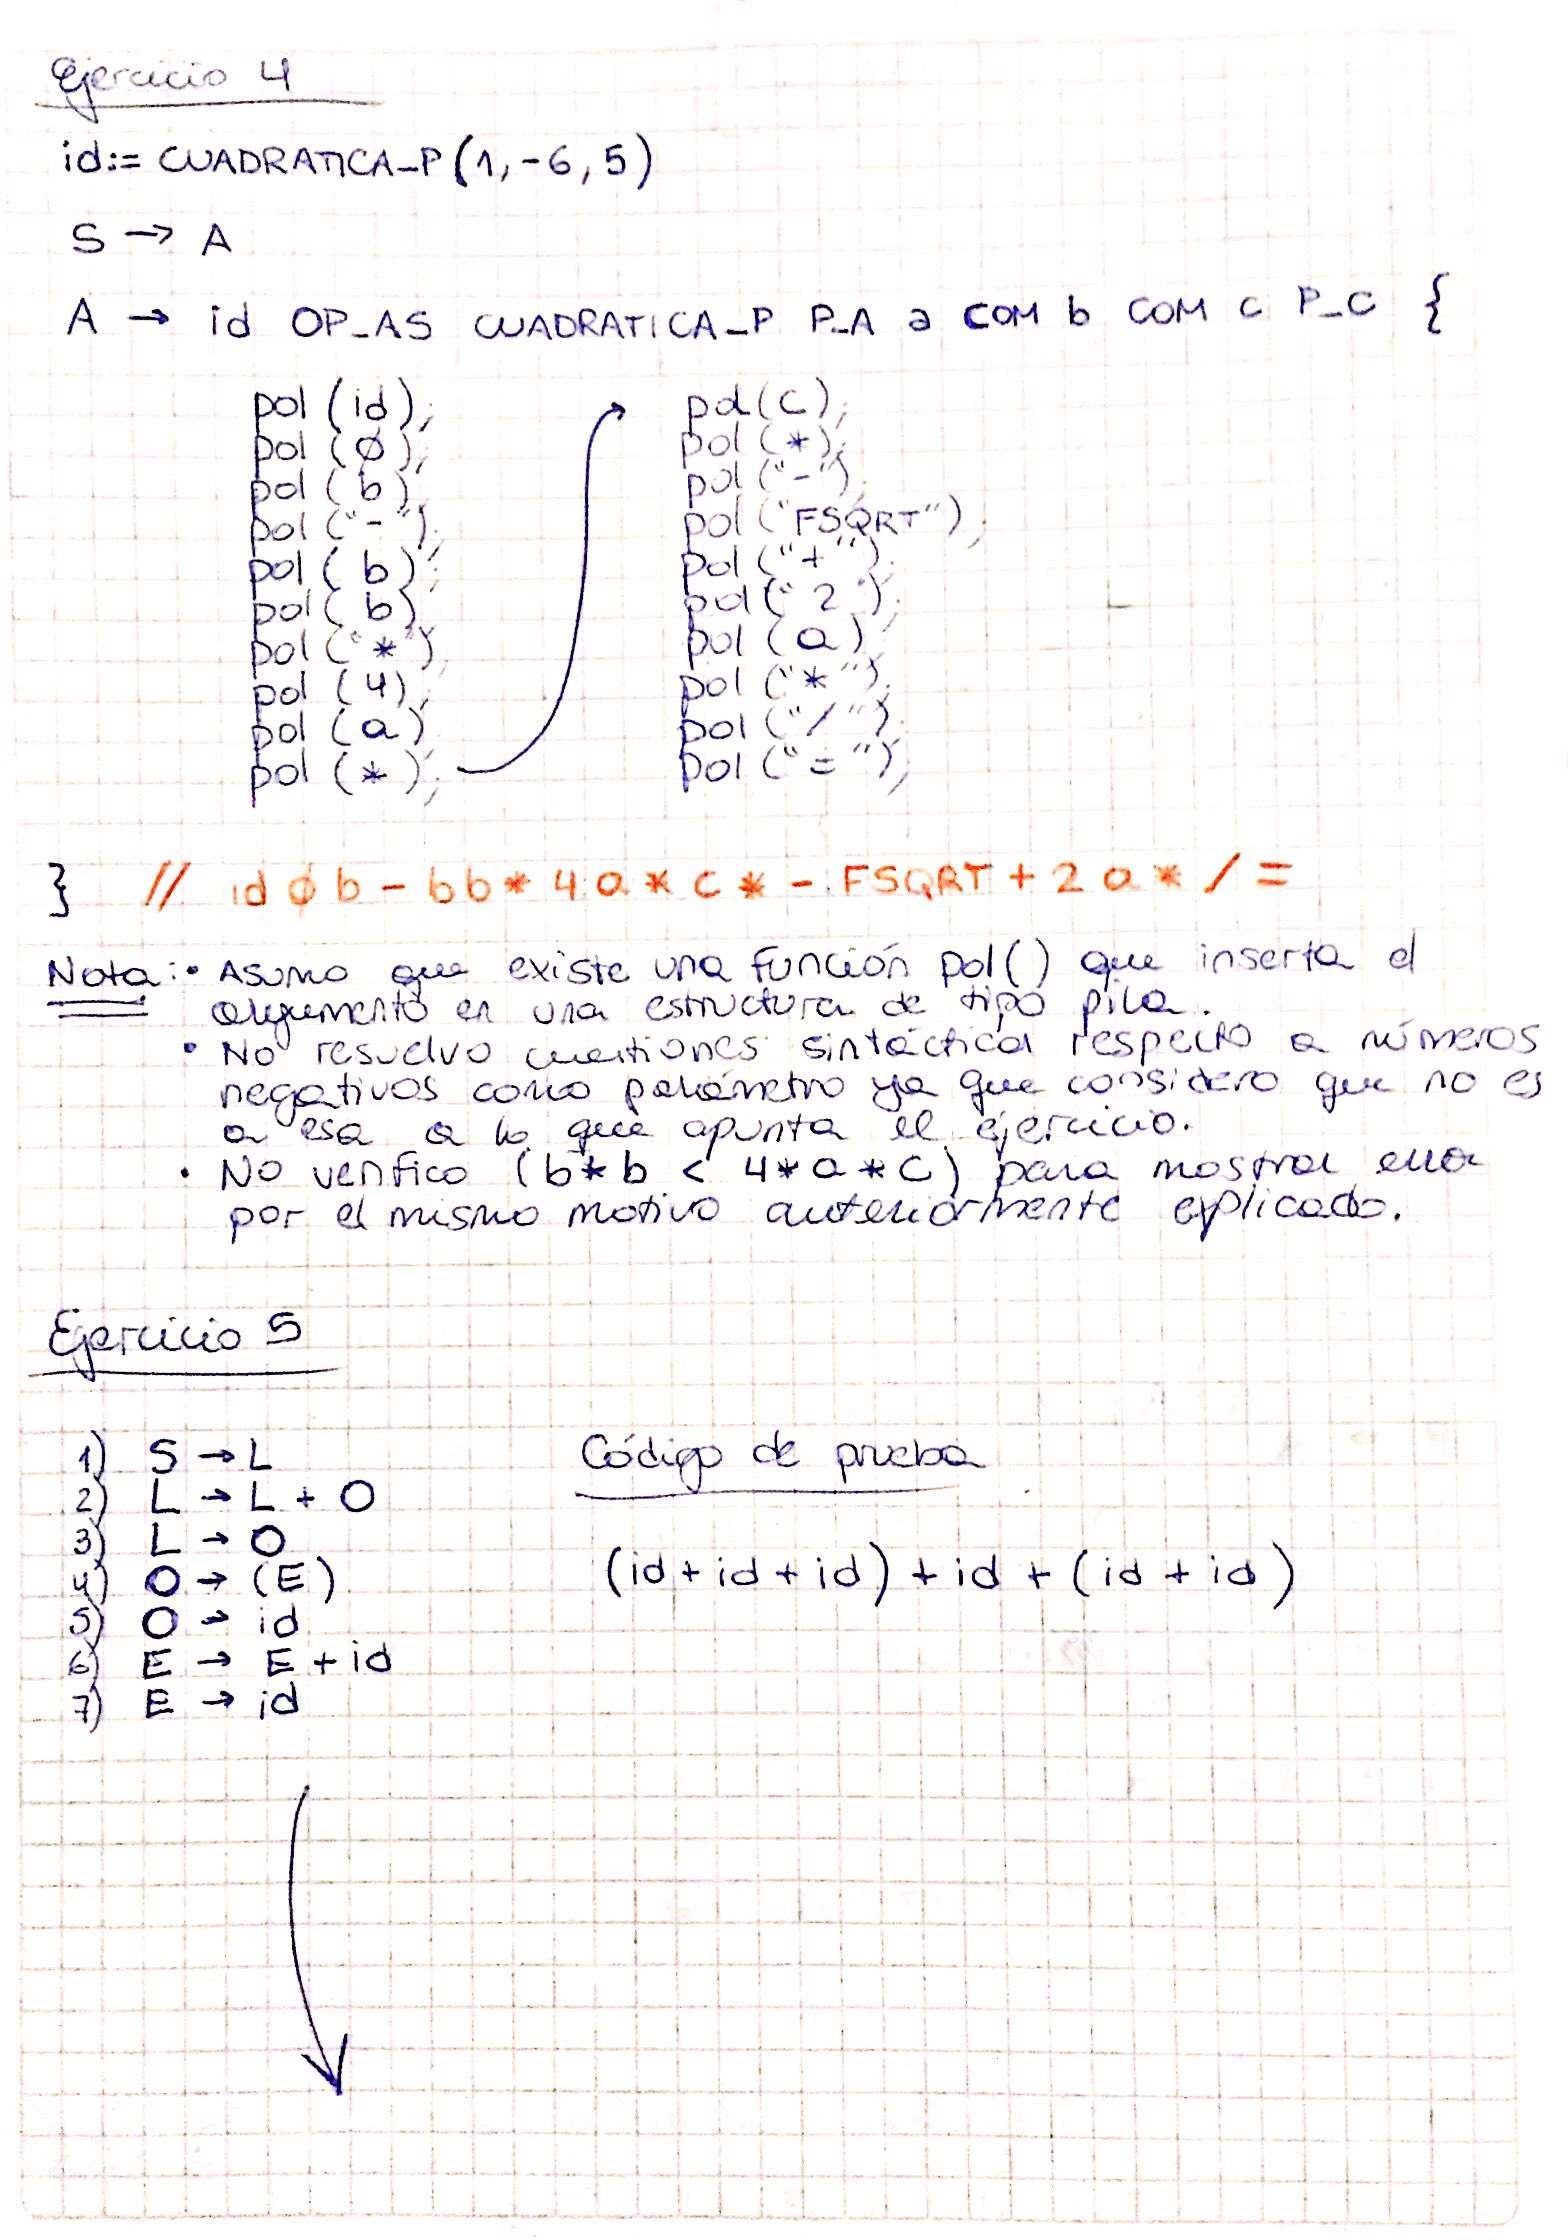 Ejercicio 4
id:= CUADRATICA_P(1,-6,5)
S → A
A → id OP_AS CUADRATICA_P P_A a COM b COM c P_C {
pol(id);
pol(ø);
pol(b);
pol("-");
pol(b);
pol(b);
pol("*");
pol(4);
pol(a);
pol(*);
pol(c);
pol(*);
pol("-");
pol("FSQRT");
pol("+");
pol("2");
pol(a);
pol("*");
pol("/");
pol("=");
} // id ø b - b b * 4 a * c * - FSQRT + 2 a * / =
Nota: • Asumo que existe una función pol() que inserta el
argumento en una estructura de tipo pila.
• No resuelvo cuestiones sintáctica respecto a números
negativos como parámetro ya que considero que no es
a esa a lo que apunta el ejercicio.
• No verifico (b*b < 4*a*c) para mostrar error
por el mismo motivo anteriormente explicado.
Ejercicio 5
1) S → L
2) L → L + O
3) L → O
4) O → (E)
5) O → id
6) E → E + id
7) E → id
Código de prueba
(id + id + id) + id + (id + id)